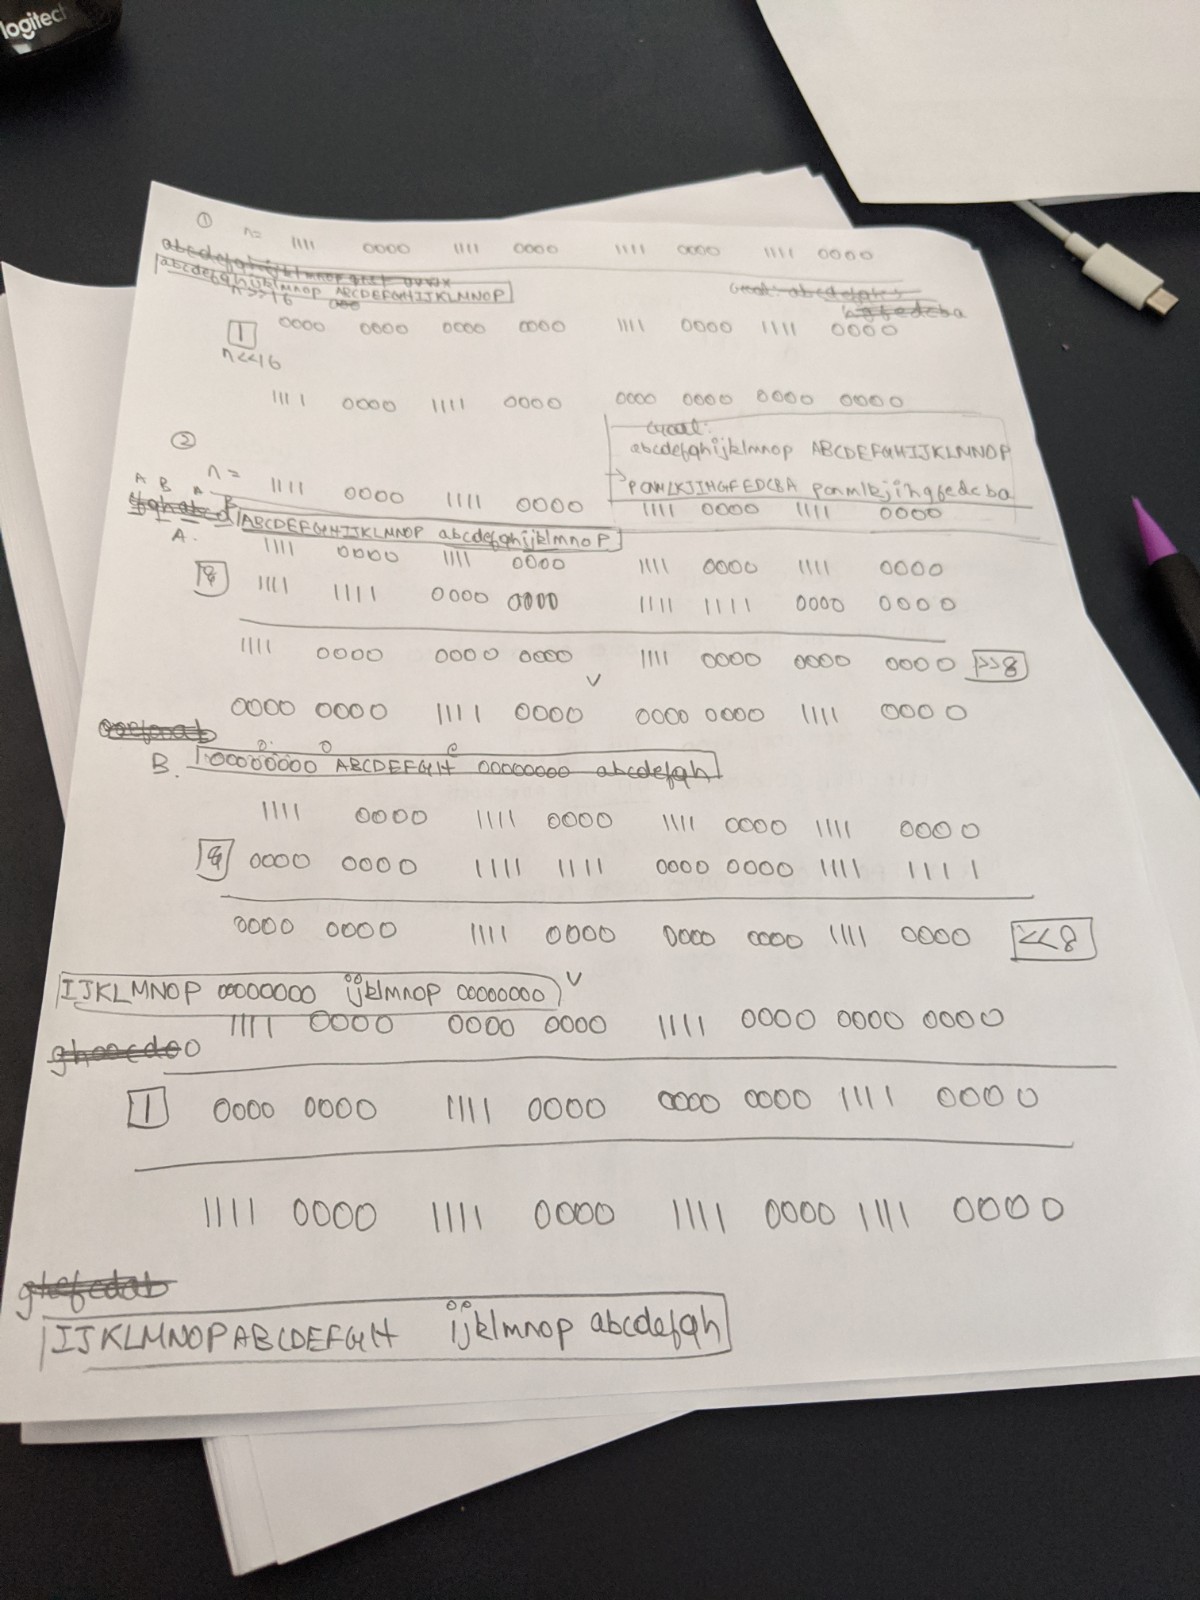 logitech
①
n= 1111 0000 1111 0000 1111 0000 1111 0000
abcdefghijklmnop ABCDEFGHIJKLMNOP
n>>16
| 0000 0000 0000 0000 1111 0000 1111 0000
n<<16
1111 0000 1111 0000 0000 0000 0000 0000
Goal:
abcdefghijklmnop ABCDEFGHIJKLMNOP
→ PONMLKJIHGFEDCBA ponmlkjihgfedcba
②
A B A B
n = 1111 0000 1111 0000 1111 0000 1111 0000
ABCDEFGHIJKLMNOP abcdefghijklmnop
A.
1111 0000 1111 0000 1111 0000 1111 0000
& 1111 1111 0000 0000 1111 1111 0000 0000
1111 0000 0000 0000 1111 0000 0000 0000 >>8
0000 0000 1111 0000 0000 0000 1111 0000
B. 00000000 ABCDEFGH 00000000 abcdefgh
1111 0000 1111 0000 1111 0000 1111 0000
& 0000 0000 1111 1111 0000 0000 1111 1111
0000 0000 1111 0000 0000 0000 1111 0000 <<8
IJKLMNOP 00000000 ijklmnop 00000000
1111 0000 0000 0000 1111 0000 0000 0000
| 0000 0000 1111 0000 0000 0000 1111 0000
1111 0000 1111 0000 1111 0000 1111 0000
IJKLMNOPABCDEFGH ijklmnop abcdefgh